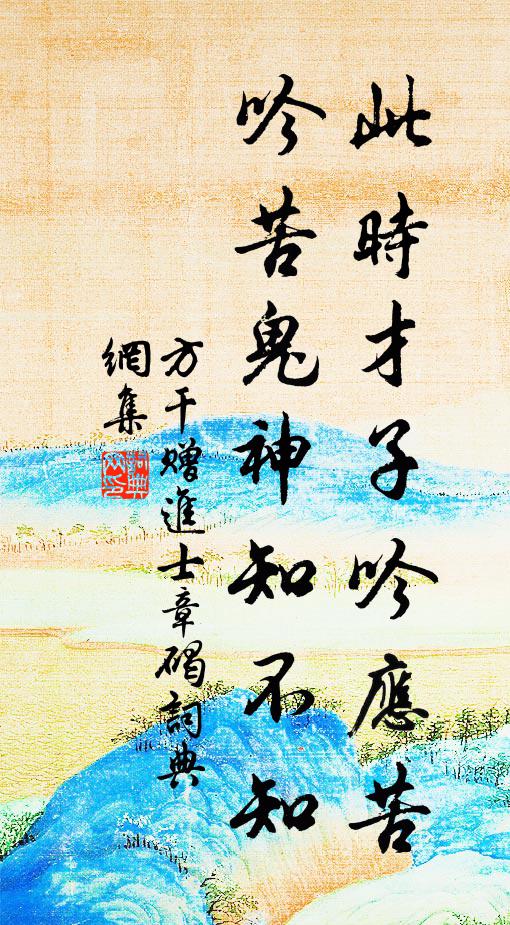 此時才子吟應苦
吟苦鬼神知不知
方干贈進士章碣詞典
網集
詞典